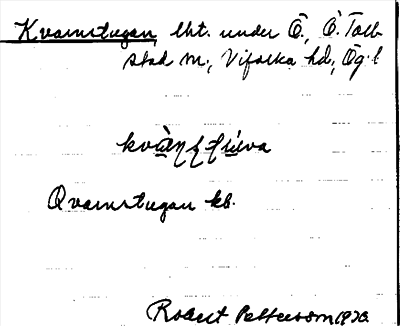 Kvarnstugan, lht. under Ö., Ö. Toll-
stad sn., Vifolka hd., Ög. l.
Qvarnstugan kb.
Robert Pettersson 1920